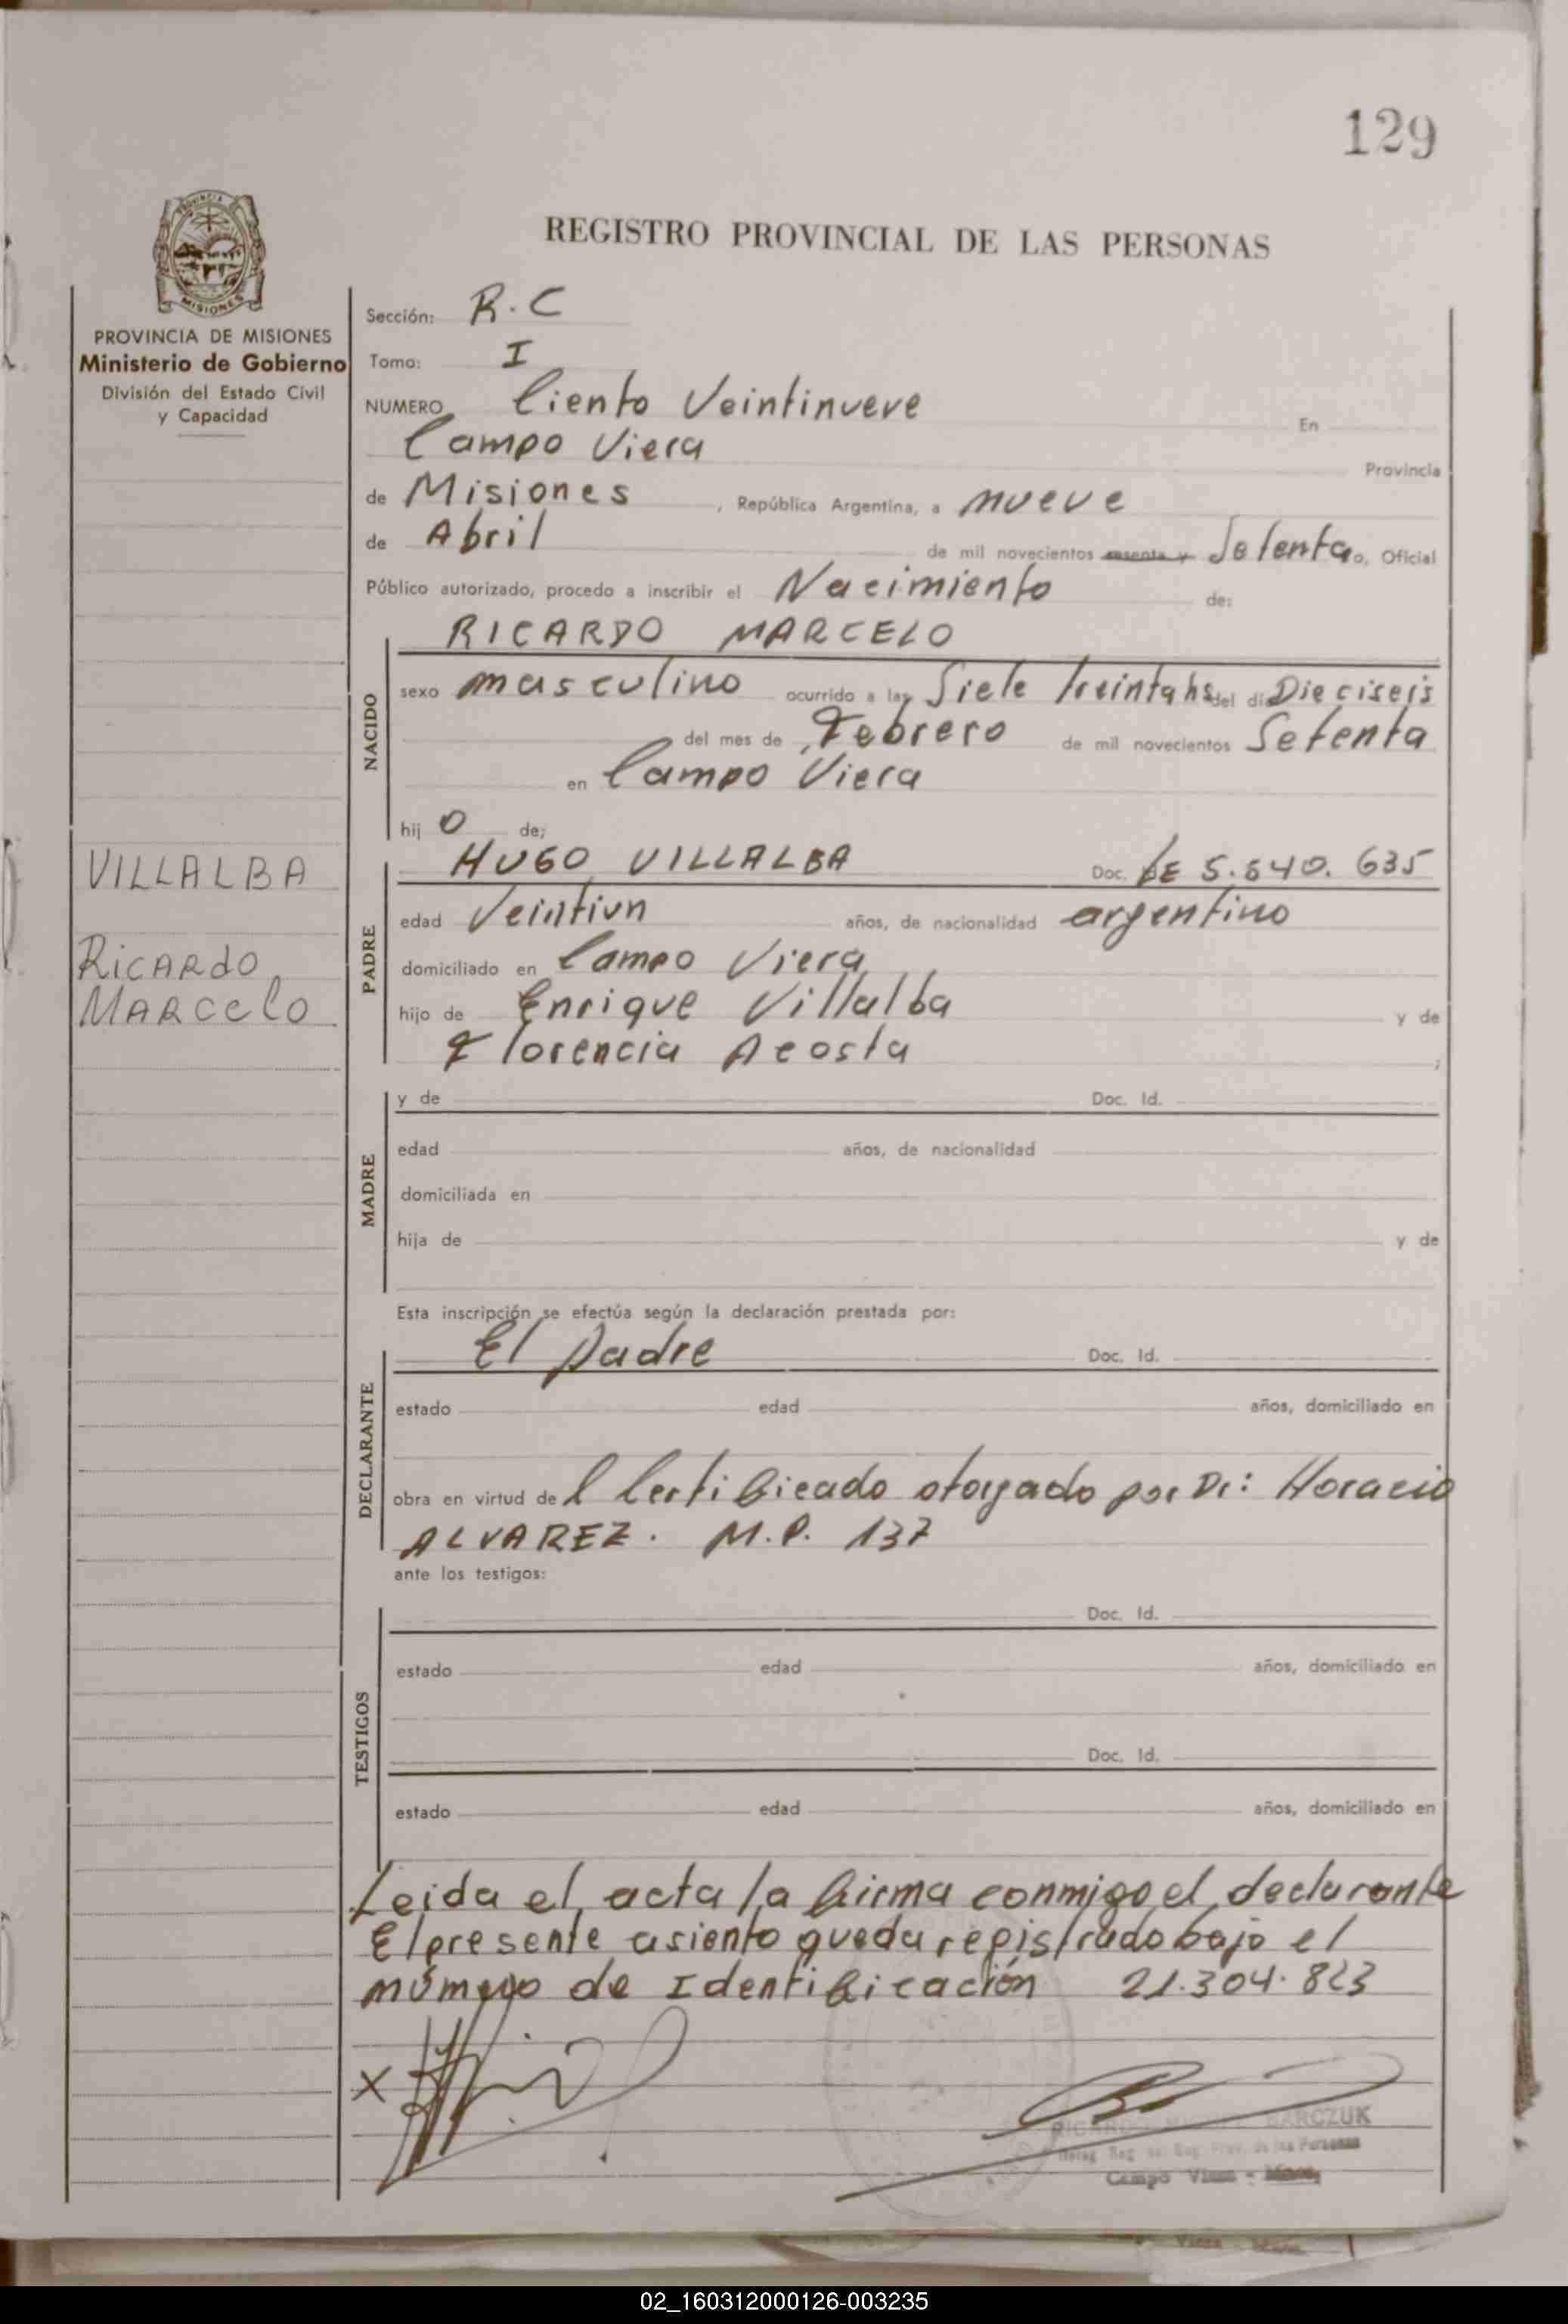 129
REGISTRO PROVINCIAL DE LAS PERSONAS
PROVINCIA DE MISIONES
Ministerio de Gobierno
División del Estado Civil
y Capacidad
Sección: R.C
Tomo: I
NUMERO Ciento Veintinueve En
Campo Viera Provincia
de Misiones, República Argentina, a nueve
de Abril de mil novecientos sesenta y Setenta o, Oficial
Público autorizado, procedo a inscribir el Nacimiento de:
NACIDO
RICARDO MARCELO
sexo masculino ocurrido a las Siete treinta hs del día Dieciseis
del mes de Febrero de mil novecientos Setenta
en Campo Viera
hij o de;
VILLALBA
Ricardo
Marcelo
PADRE
HUGO VILLALBA Doc. LE 5.540.635
edad Veintiun años, de nacionalidad argentino
domiciliado en Campo Viera
hijo de Enrique Villalba y de
Florencia Acosta ;
MADRE
y de Doc. Id.
edad años, de nacionalidad
domiciliada en
hija de y de
Esta inscripción se efectúa según la declaración prestada por:
DECLARANTE
El padre Doc. Id.
estado edad años, domiciliado en
obra en virtud de l Certificado otorgado por Dr: Horacio
ALVAREZ. M.P. 137
ante los testigos:
TESTIGOS
Doc. Id.
estado edad años, domiciliado en
Doc. Id.
estado edad años, domiciliado en
Leida el acta la firma conmigo el declarante
El presente asiento queda registrado bajo el
número de Identificación 21.304.823
X
RICARDO BARCZUK
de las Personas
Campo Viera -
02_160312000126-003235